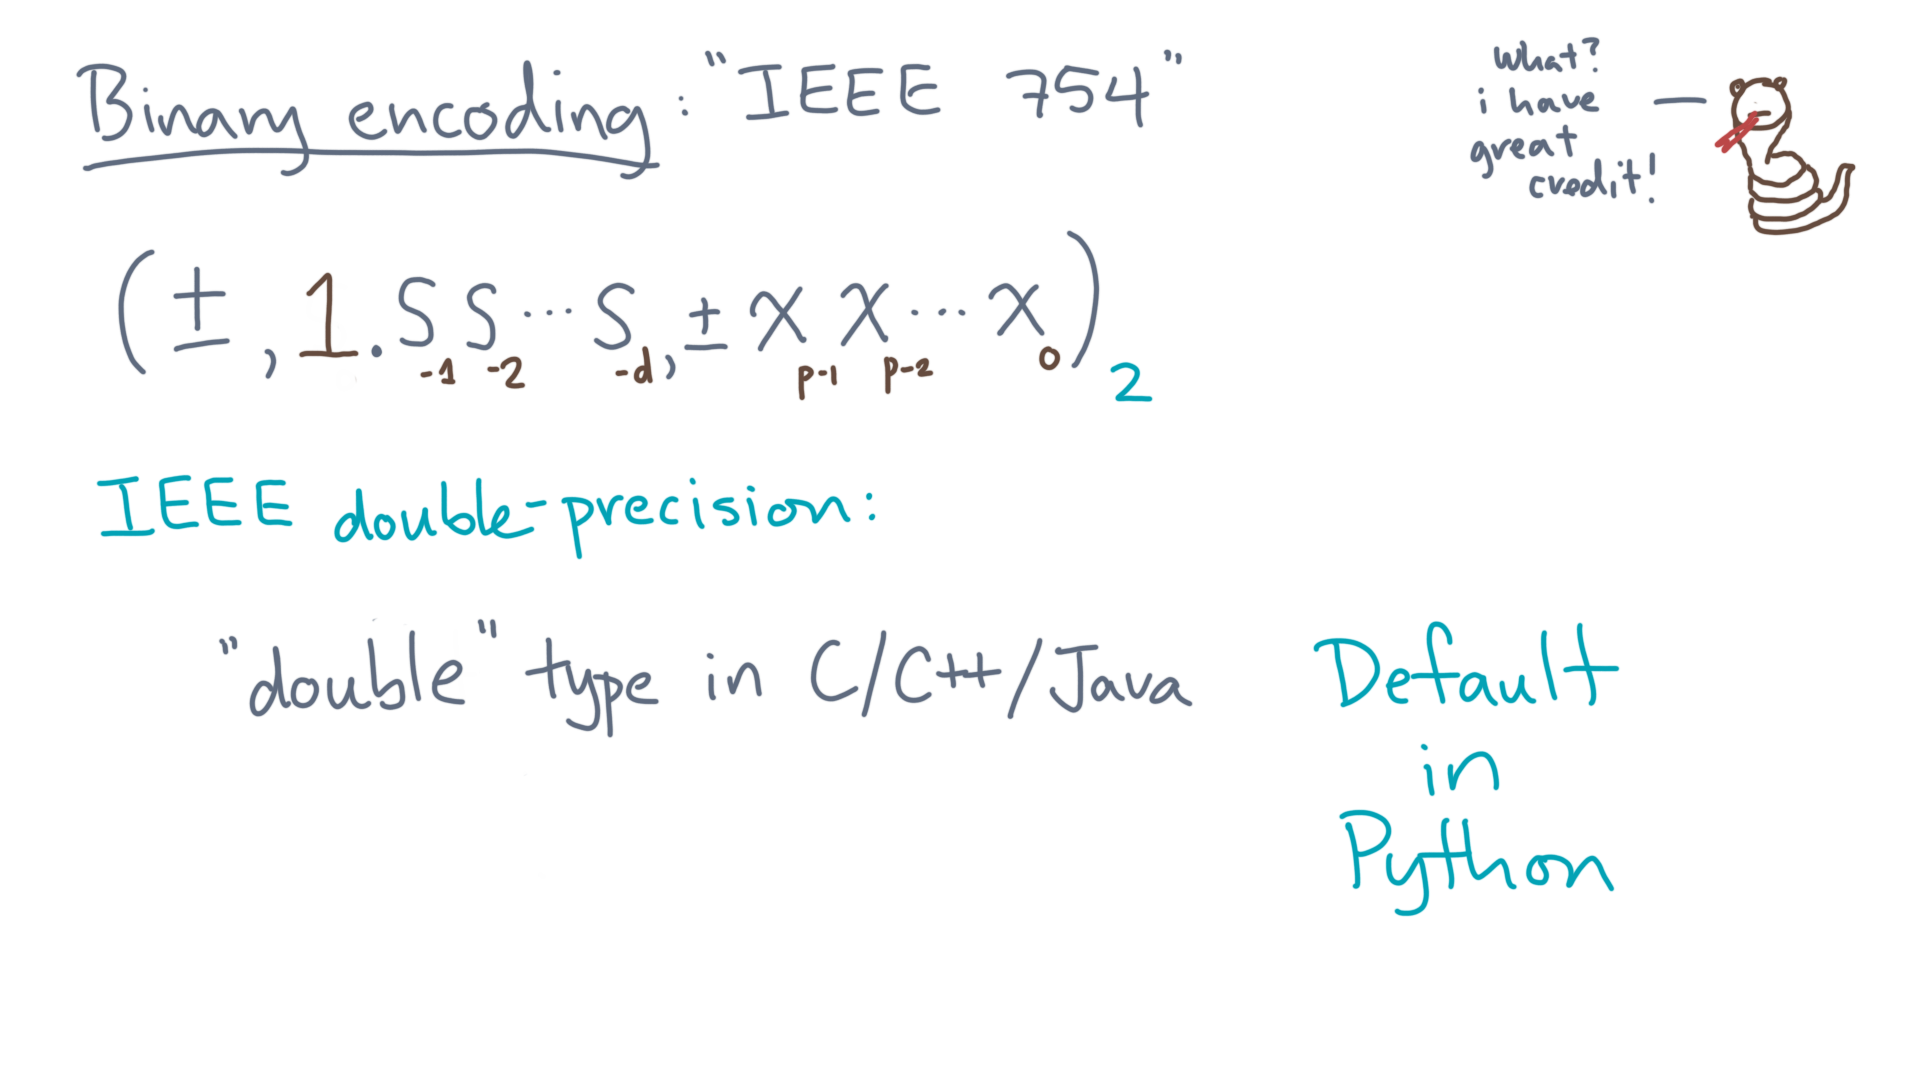 Binary encoding: "IEEE 754"
what?
i have
great
credit!
(±, 1.SS...S, ±XX...X)
-1 -2 -d p-1 p-2 0 2
IEEE double-precision:
"double" type in C/C++/Java
Default
in
Python